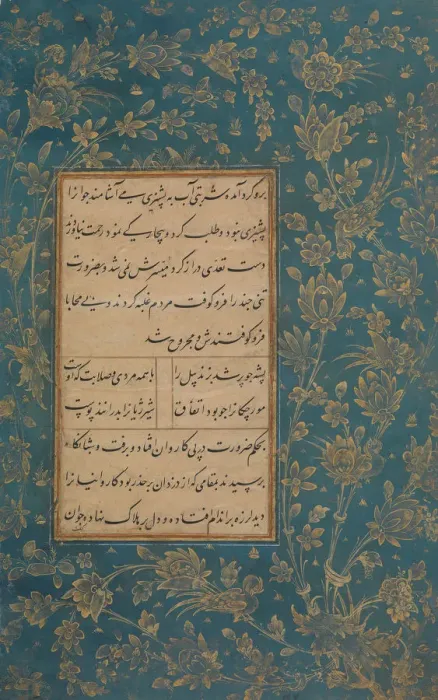 برو گرد آمده و شربتی آب به پشیزی می آشامند جوانرا
پشیزی نبود و طلب کرد و بیچارگی نمود رحمت نیاوردند
دست تعدی دراز کرد میسرش نمی شد و بضرورت
تنی چند را فرو کوفت مردم غلبه کردند و بی محابا
فرو کوفتندش و مجروح شد
پشه چو پر شد بزند پیل را با همه مردی و صلابت که اوست
مورچگانرا چو بود اتفاق شیر ژیانرا بدرانند پوست
بحکم ضرورت در پی کاروان افتاد و برفت و شبانگاه
برسیدند بمقامی که از دزدان بر حذر بود کاروانیانرا
دید لرزه بر اندام افتاده و دل بر هلاک نهاده جوان